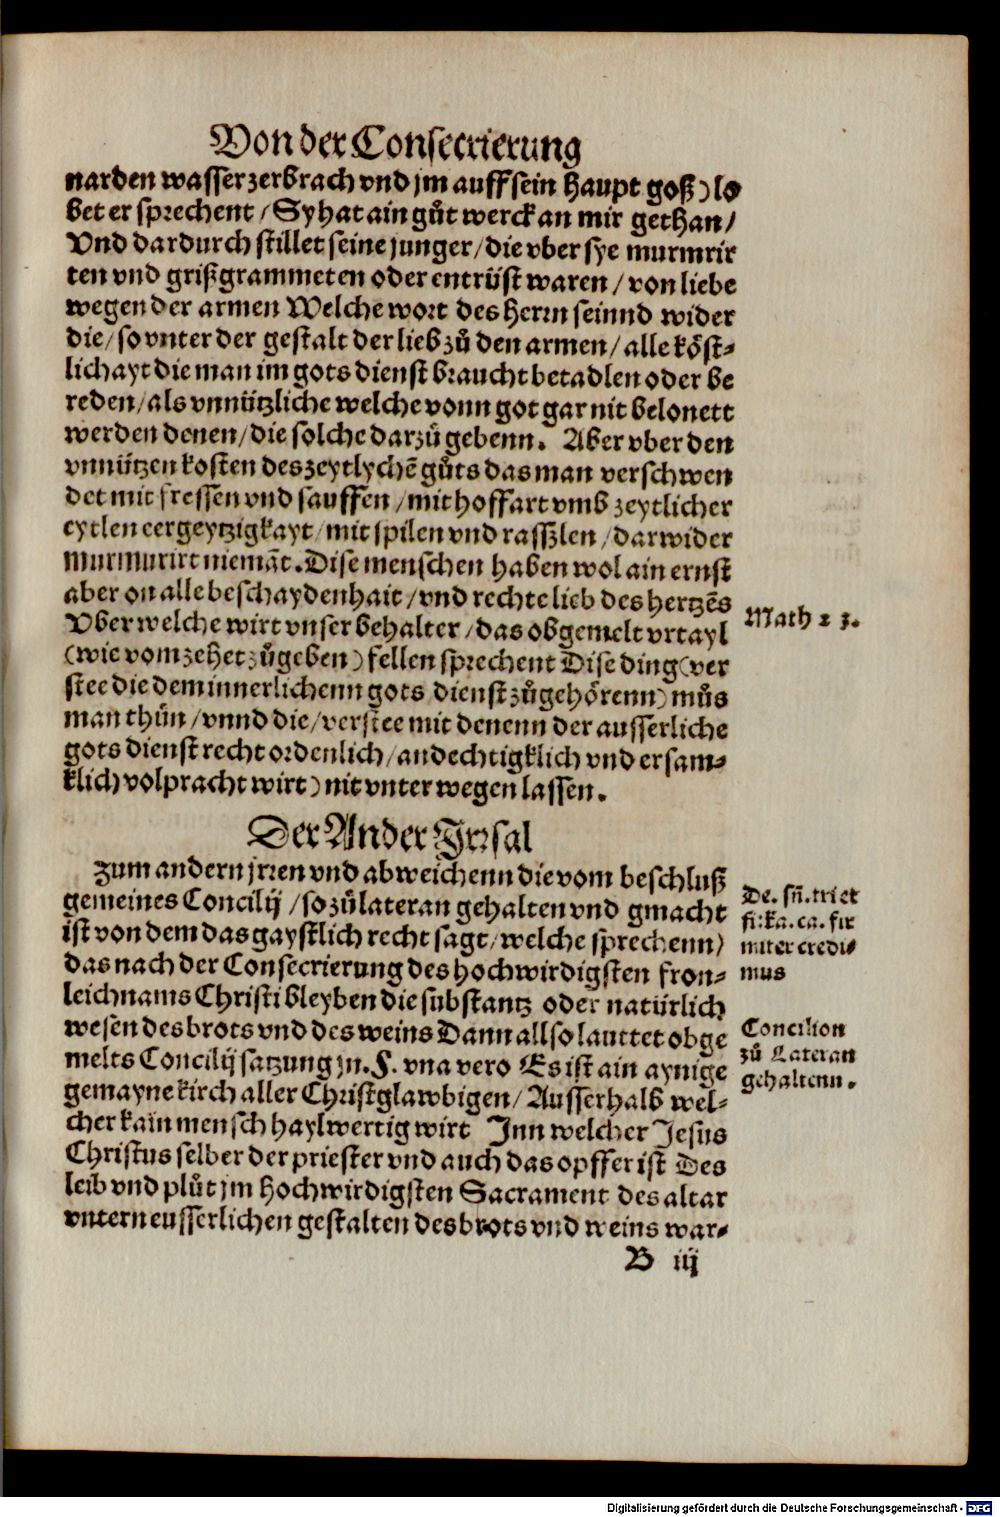 Von der Consecrierung
narden wasser zerbrach vnd jm auff sein haupt goß) lo
bet er sprechent / Sy hat ain gůt werck an mir gethan /
Vnd dardurch stillet seine junger / die vber sye murmrir
ten vnd grißgrammeten oder entrüst waren / von liebe
wegen der armen Welche wort des herrn seinnd wider
die / so vnter der gestalt der lieb zů den armen / alle köst⸗
lichayt die man im gots dienst braucht betadlen oder be
reden / als vnnützliche welche vonn got gar nit belonett
werden denen / die solche darzů gebenn. Aber vber den
vnnützen kosten des zeytlychē gůts das man verschwen
det mit fressen vnd sauffen / mit hoffart vmb zeytlicher
eytlen eergeytzigkayt / mit spilen vnd rasslen / darwider
murmurirt niemāt. Dise menschen haben wol ain ernst
aber on alle beschaydenhait / vnd rechte lieb des hertzēs
Vber welche wirt vnser behalter / das obgemelt vrtayl
(wie vom zehet zůgeben) fellen sprechent Dise ding (ver
stee die dem innerlichenn gots dienst zůgehörenn) můs
man thůn / vnnd die / verstee mit denenn der ausserliche
gots dienst recht ordenlich / andechtigklich vnd ersam⸗
klich volpracht wirt) nit vnter wegen lassen.
Math 23.
Der Ander Jrrsal
Zum andern jrren vnd abweichenn die vom beschluß
gemeines Concilij / so zů lateran gehalten vnd gmacht
ist von dem das gaystlich recht sagt / welche sprechenn)
das nach der Consecrierung des hochwirdigsten fron⸗
leichnams Christi bleyben die substantz oder natürlich
wesen des brots vnd des weins Dann allso lauttet obge
melts Concilij satzung jn. §. vna vero Es ist ain aynige
gemayne kirch aller Christglawbigen / Ausserhalb wel⸗
cher kain mensch haylwertig wirt Jnn welcher Jesus
Christus selber der priester vnd auch das opffer ist Des
leib vnd plůt jm hochwirdigsten Sacrament des altar
vntern eusserlichen gestalten des brots vnd weins war⸗
De. sū. tri et
fi: ka. ca. fir
miter credi⸗
mus
Concilion
zů Lateran
gehaltenn.
B iij
Digitalisierung gefördert durch die Deutsche Forschungsgemeinschaft - DFG